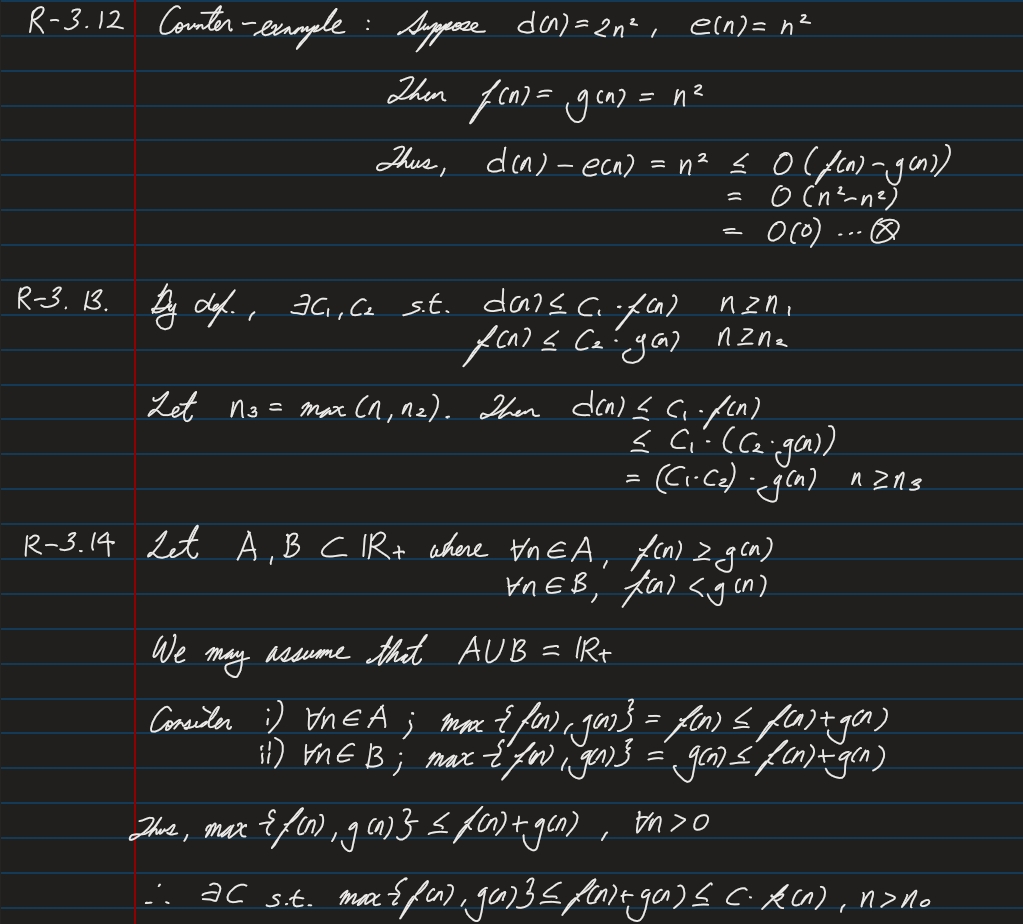 R-3.12 Counter-example : Suppose d(n)=2n², e(n)=n²
Then f(n)= g(n) = n²
Thus, d(n) - e(n) = n² ≤ O(f(n)-g(n))
= O(n²-n²)
= O(0) ... ⊗
R-3.13. By def., ∃C₁,C₂ s.t. d(n) ≤ C₁·f(n) n≥n₁
f(n) ≤ C₂·g(n) n≥n₂
Let n₃ = max(n, n₂). Then d(n) ≤ C₁·f(n)
≤ C₁·(C₂·g(n))
= (C₁·C₂)·g(n) n ≥n₃
R-3.14 Let A, B ⊂ ℝ+ where ∀n∈A, f(n) ≥ g(n)
∀n∈B, f(n) < g(n)
We may assume that A∪B = ℝ+
Consider i) ∀n∈A ; max{f(n), g(n)} = f(n) ≤ f(n)+g(n)
ii) ∀n∈B ; max{f(n), g(n)} = g(n) ≤ f(n)+g(n)
Thus, max{f(n), g(n)} ≤ f(n)+g(n) , ∀n>0
∴ ∃C s.t. max{f(n), g(n)} ≤ f(n)+g(n) ≤ C·k(n), n>n₀